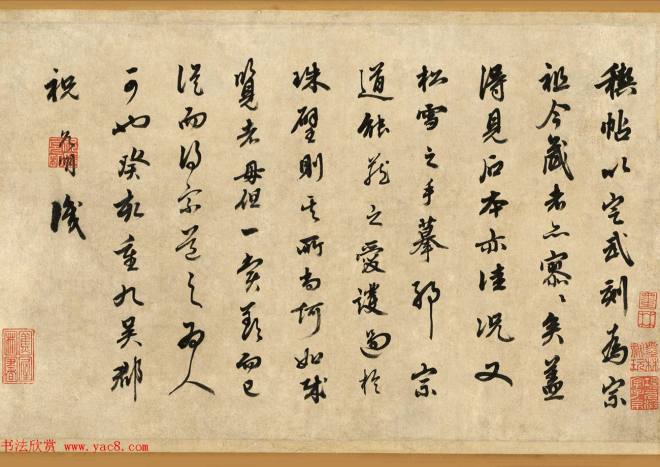 稧帖以定武刻為宗
祖今藏者亦寥々矣蓋
得見石本亦佳況又
松雪之手摹耶宗
道能之愛護過於
珠璧則其所尚何如哉
覽者毋但一賞歎而已
從而得宗道之為人
可也癸亥重九吳郡
祝允明識
书法欣赏 www.yac8.com